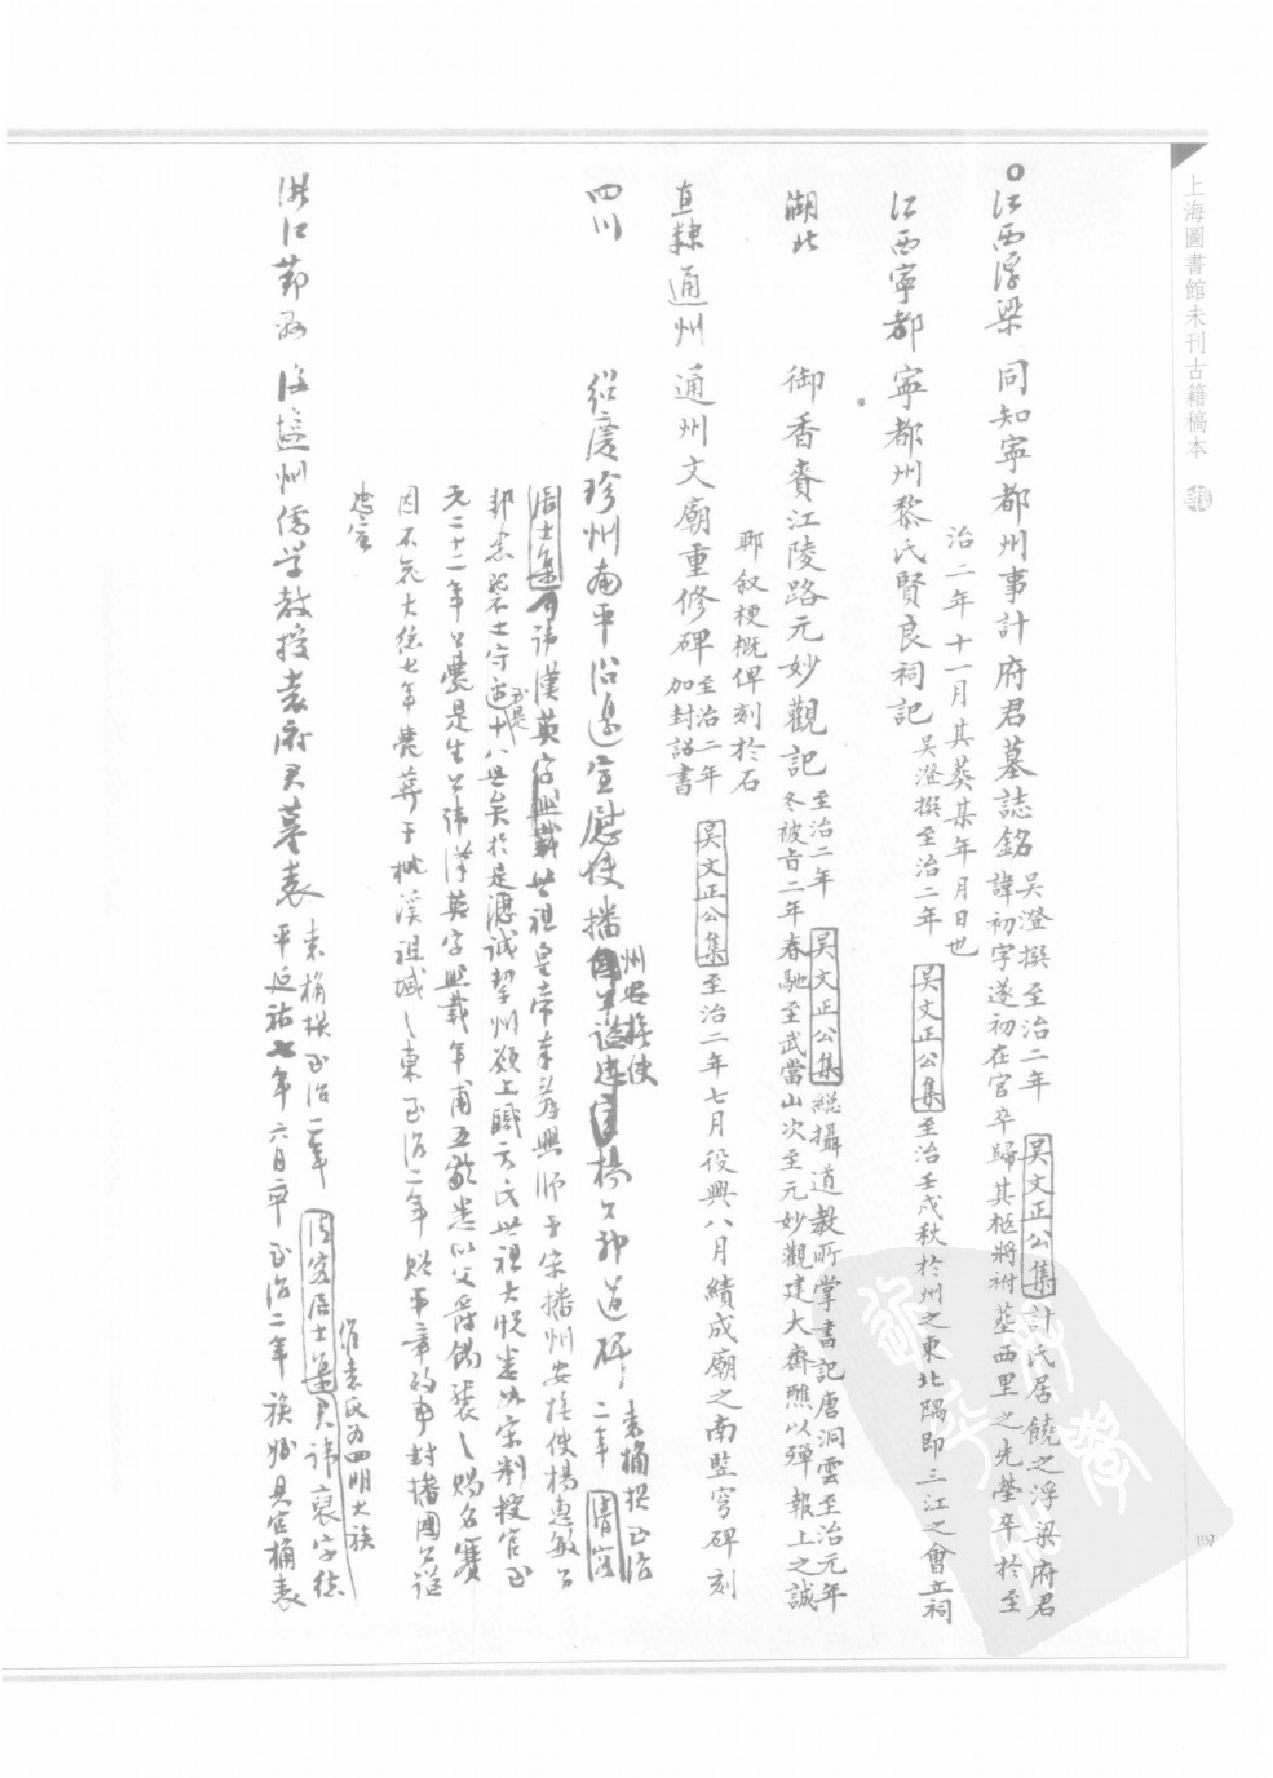 上海圖書館未刊古籍稿本
江西浮梁 同知寧都州事計府君墓誌銘 吳澄撰至治二年 吳文正公集 計氏居饒之浮梁府君
諱初字遂初在官卒歸其柩將祔塟西里之先塋卒於至
治二年十一月其葬某年月日也
江西寧都 寧都州黎氏賢良祠記 吳澄撰至治二年 吳文正公集 至治壬戌秋於州之東北隅即三江之會立祠
湖北 御香賚江陵路元妙觀記 至治二年 吳文正公集 總攝道教所掌書記唐洞雲至治元年
冬被旨二年春馳至武當山次至元妙觀建大齋醮以殫報上之誠
耶叙梗概俾刻於石
直隸通州 通州文廟重修碑 至治二年 吳文正公集 至治二年七月役興八月績成廟之南豎穹碑刻
加封詔書
四川 紹慶珍州南平沿邊宣慰使播州安撫使楊公神道碑 袁桷撰至治二年 清容
居士集 諱漢英字熙載世祖皇帝奉辭興師于宋播州安撫使楊惠敏公
邦憲 於是 世矣於是湛誠挈州願上職方氏世祖大悅悉如宋制授官至
元二十二年公薨是生公諱漢英字熙載年甫五齡悉以父爵錫襲之賜名賽
因不花大德七年薨葬于 溪祖域之東至治二年贈平章政事封播國公諡
忠宣
浙江鄞縣 海鹽州儒學教授袁府君墓表 袁桷撰至治二年 清容居士集 君諱裒字德
平延祐七年六月卒至治二年族 具官桷表
袁氏為四明大族